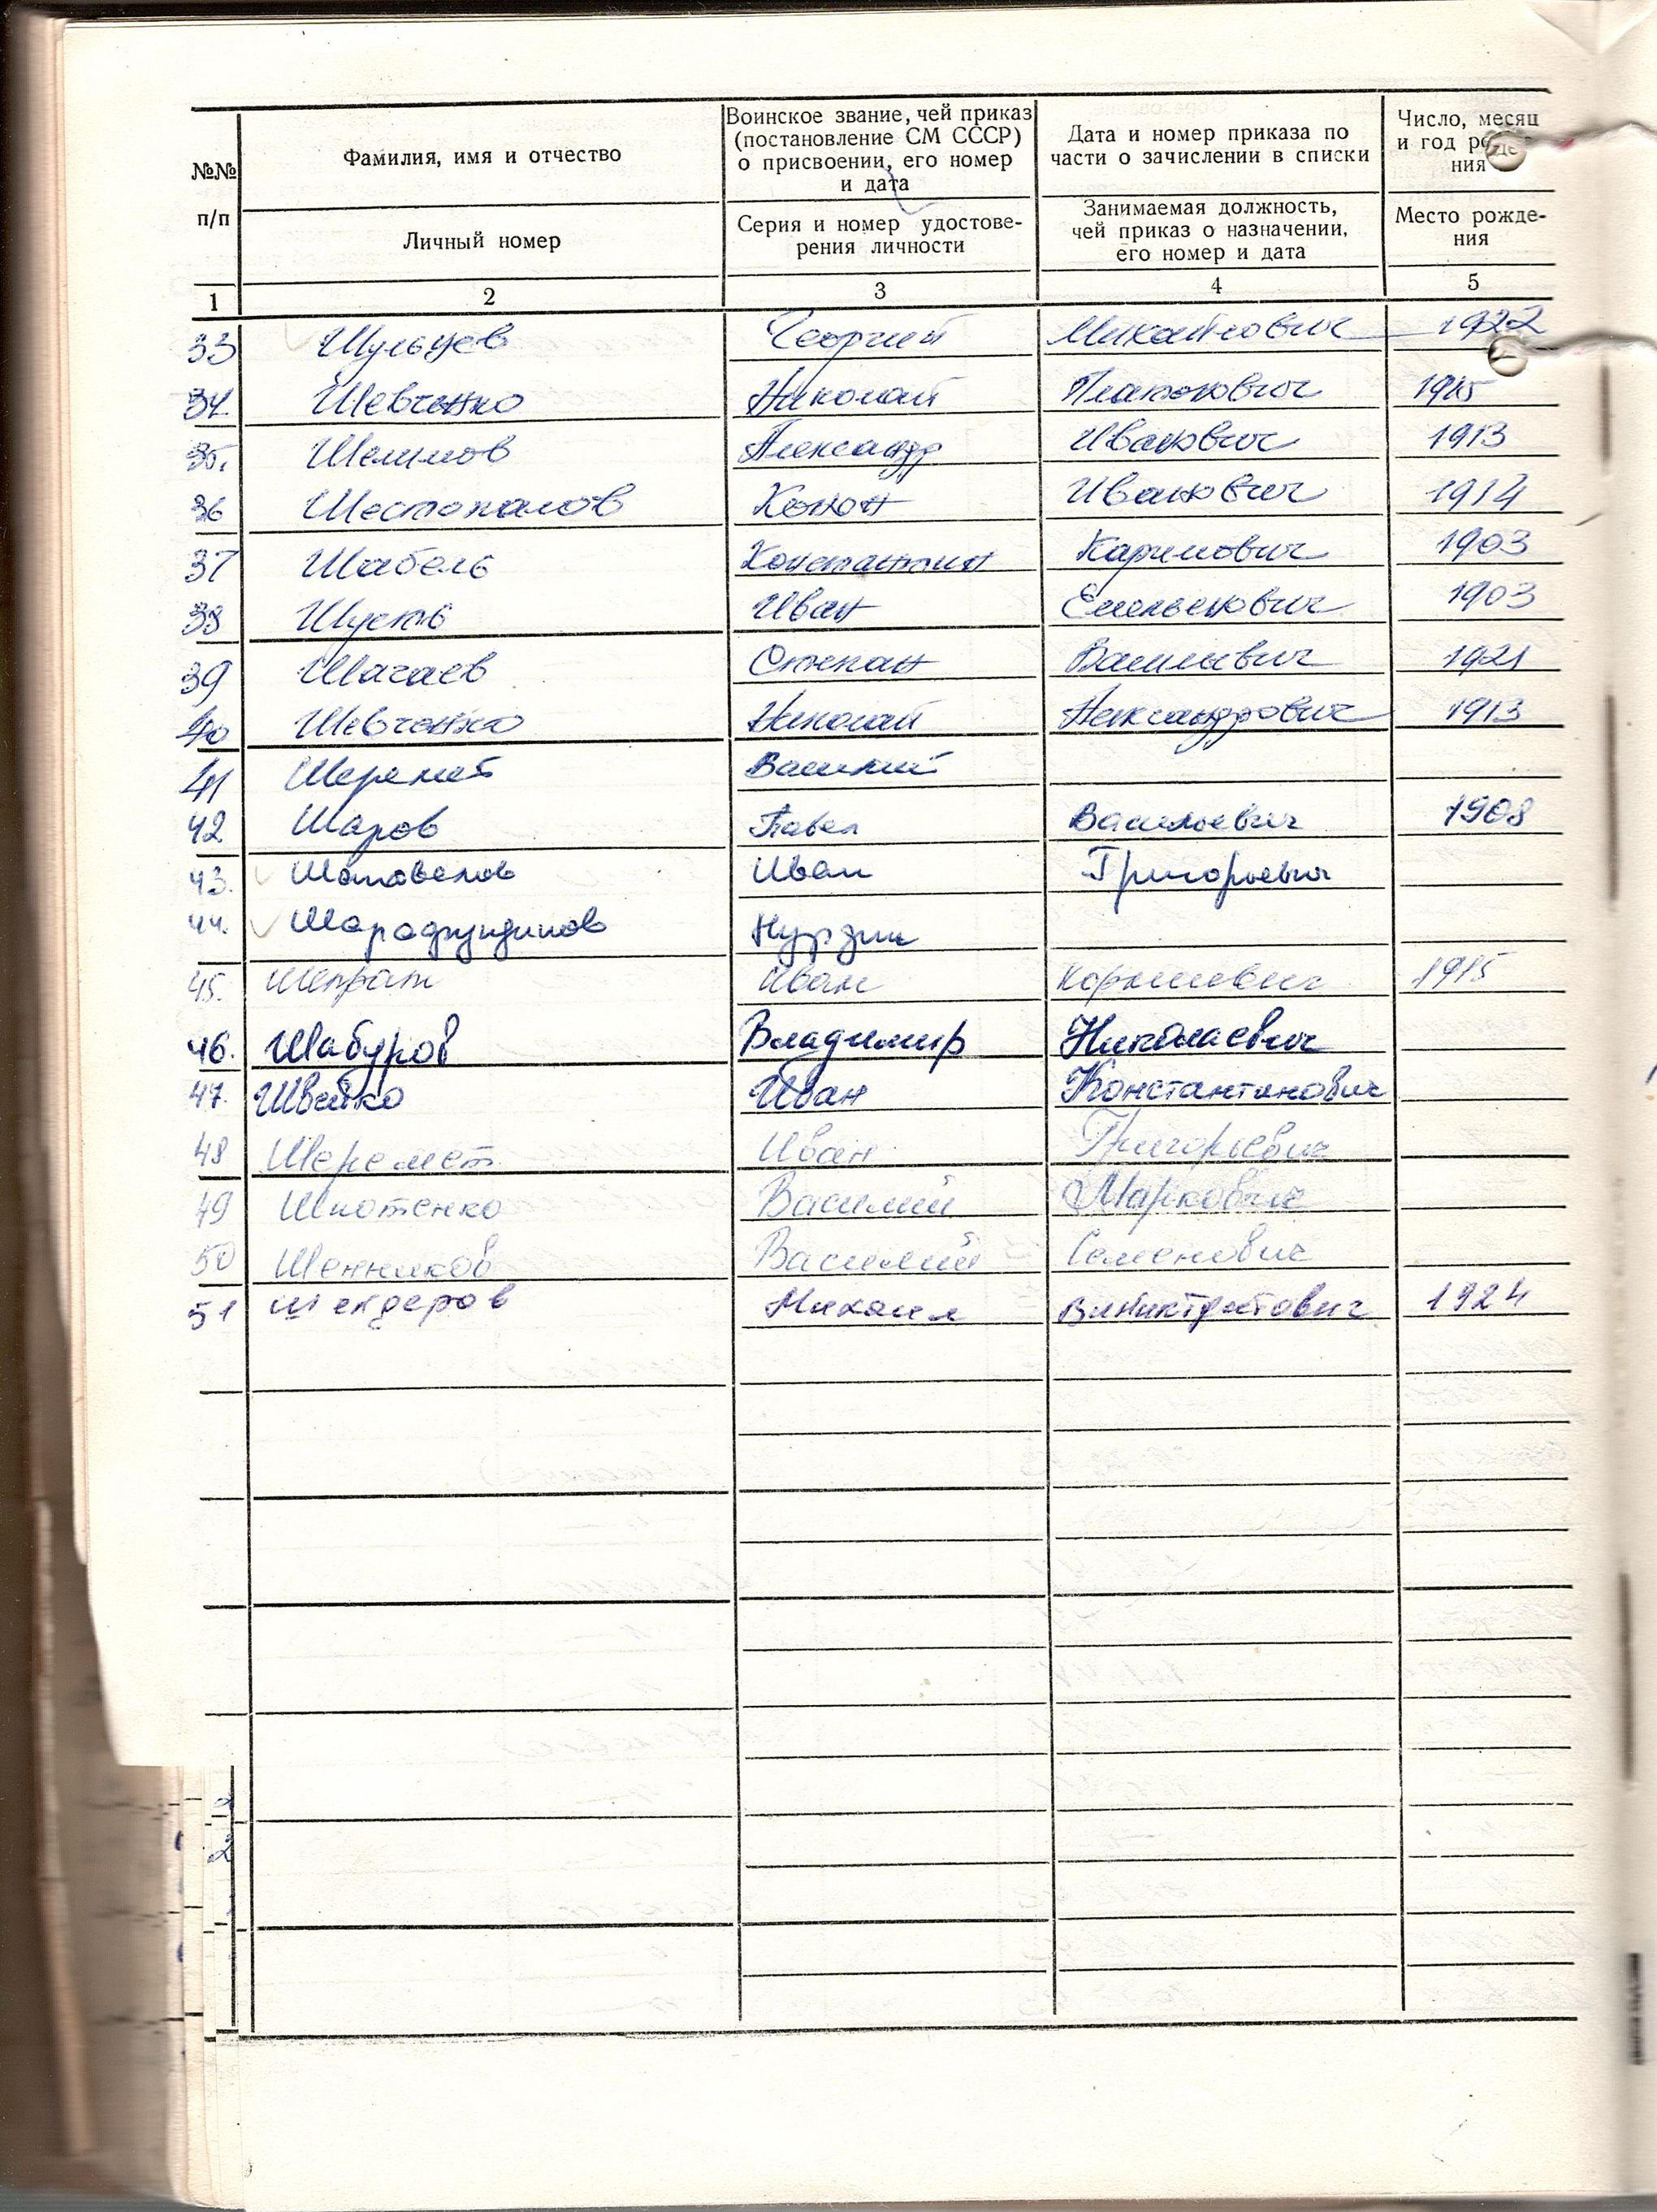 №№ п/п
Фамилия, имя и отчество
Личный номер
Воинское звание, чей приказ
(постановление СМ СССР)
о присвоении, его номер
и дата
Серия и номер удостове-
рения личности
Дата и номер приказа по
части о зачислении в списки
Занимаемая должность,
чей приказ о назначении,
его номер и дата
Число, месяц
и год
ния
Место рожде-
ния
1 2 3 4 5
33 Шульцев Георгий Михайлович 1922
34. Шевченко Николай Платонович 1915
35. Александр Иванович 1913
36 Шестопалов Конон Иванович 1914
37 Шабель Константин Карпович 1903
38 Шустов Иван Емельянович 1903
39 Шагаев Степан Васильевич 1921
40 Шевченко Николай Александрович 1913
41 Шеремет Василий
42 Шаров Павел Васильевич 1908
43. Шаповалов Иван Григорьевич
44. Шарафундинов
45. Иван Корнеевич 1915
46. Шабуров Владимир Николаевич
47. Швейко Иван Константинович
48 Шеремет Иван Григорьевич
49 Шпотенко Василий Маркович
50 Щенников Василий Семенович
51 Шендеров Михаил 1924